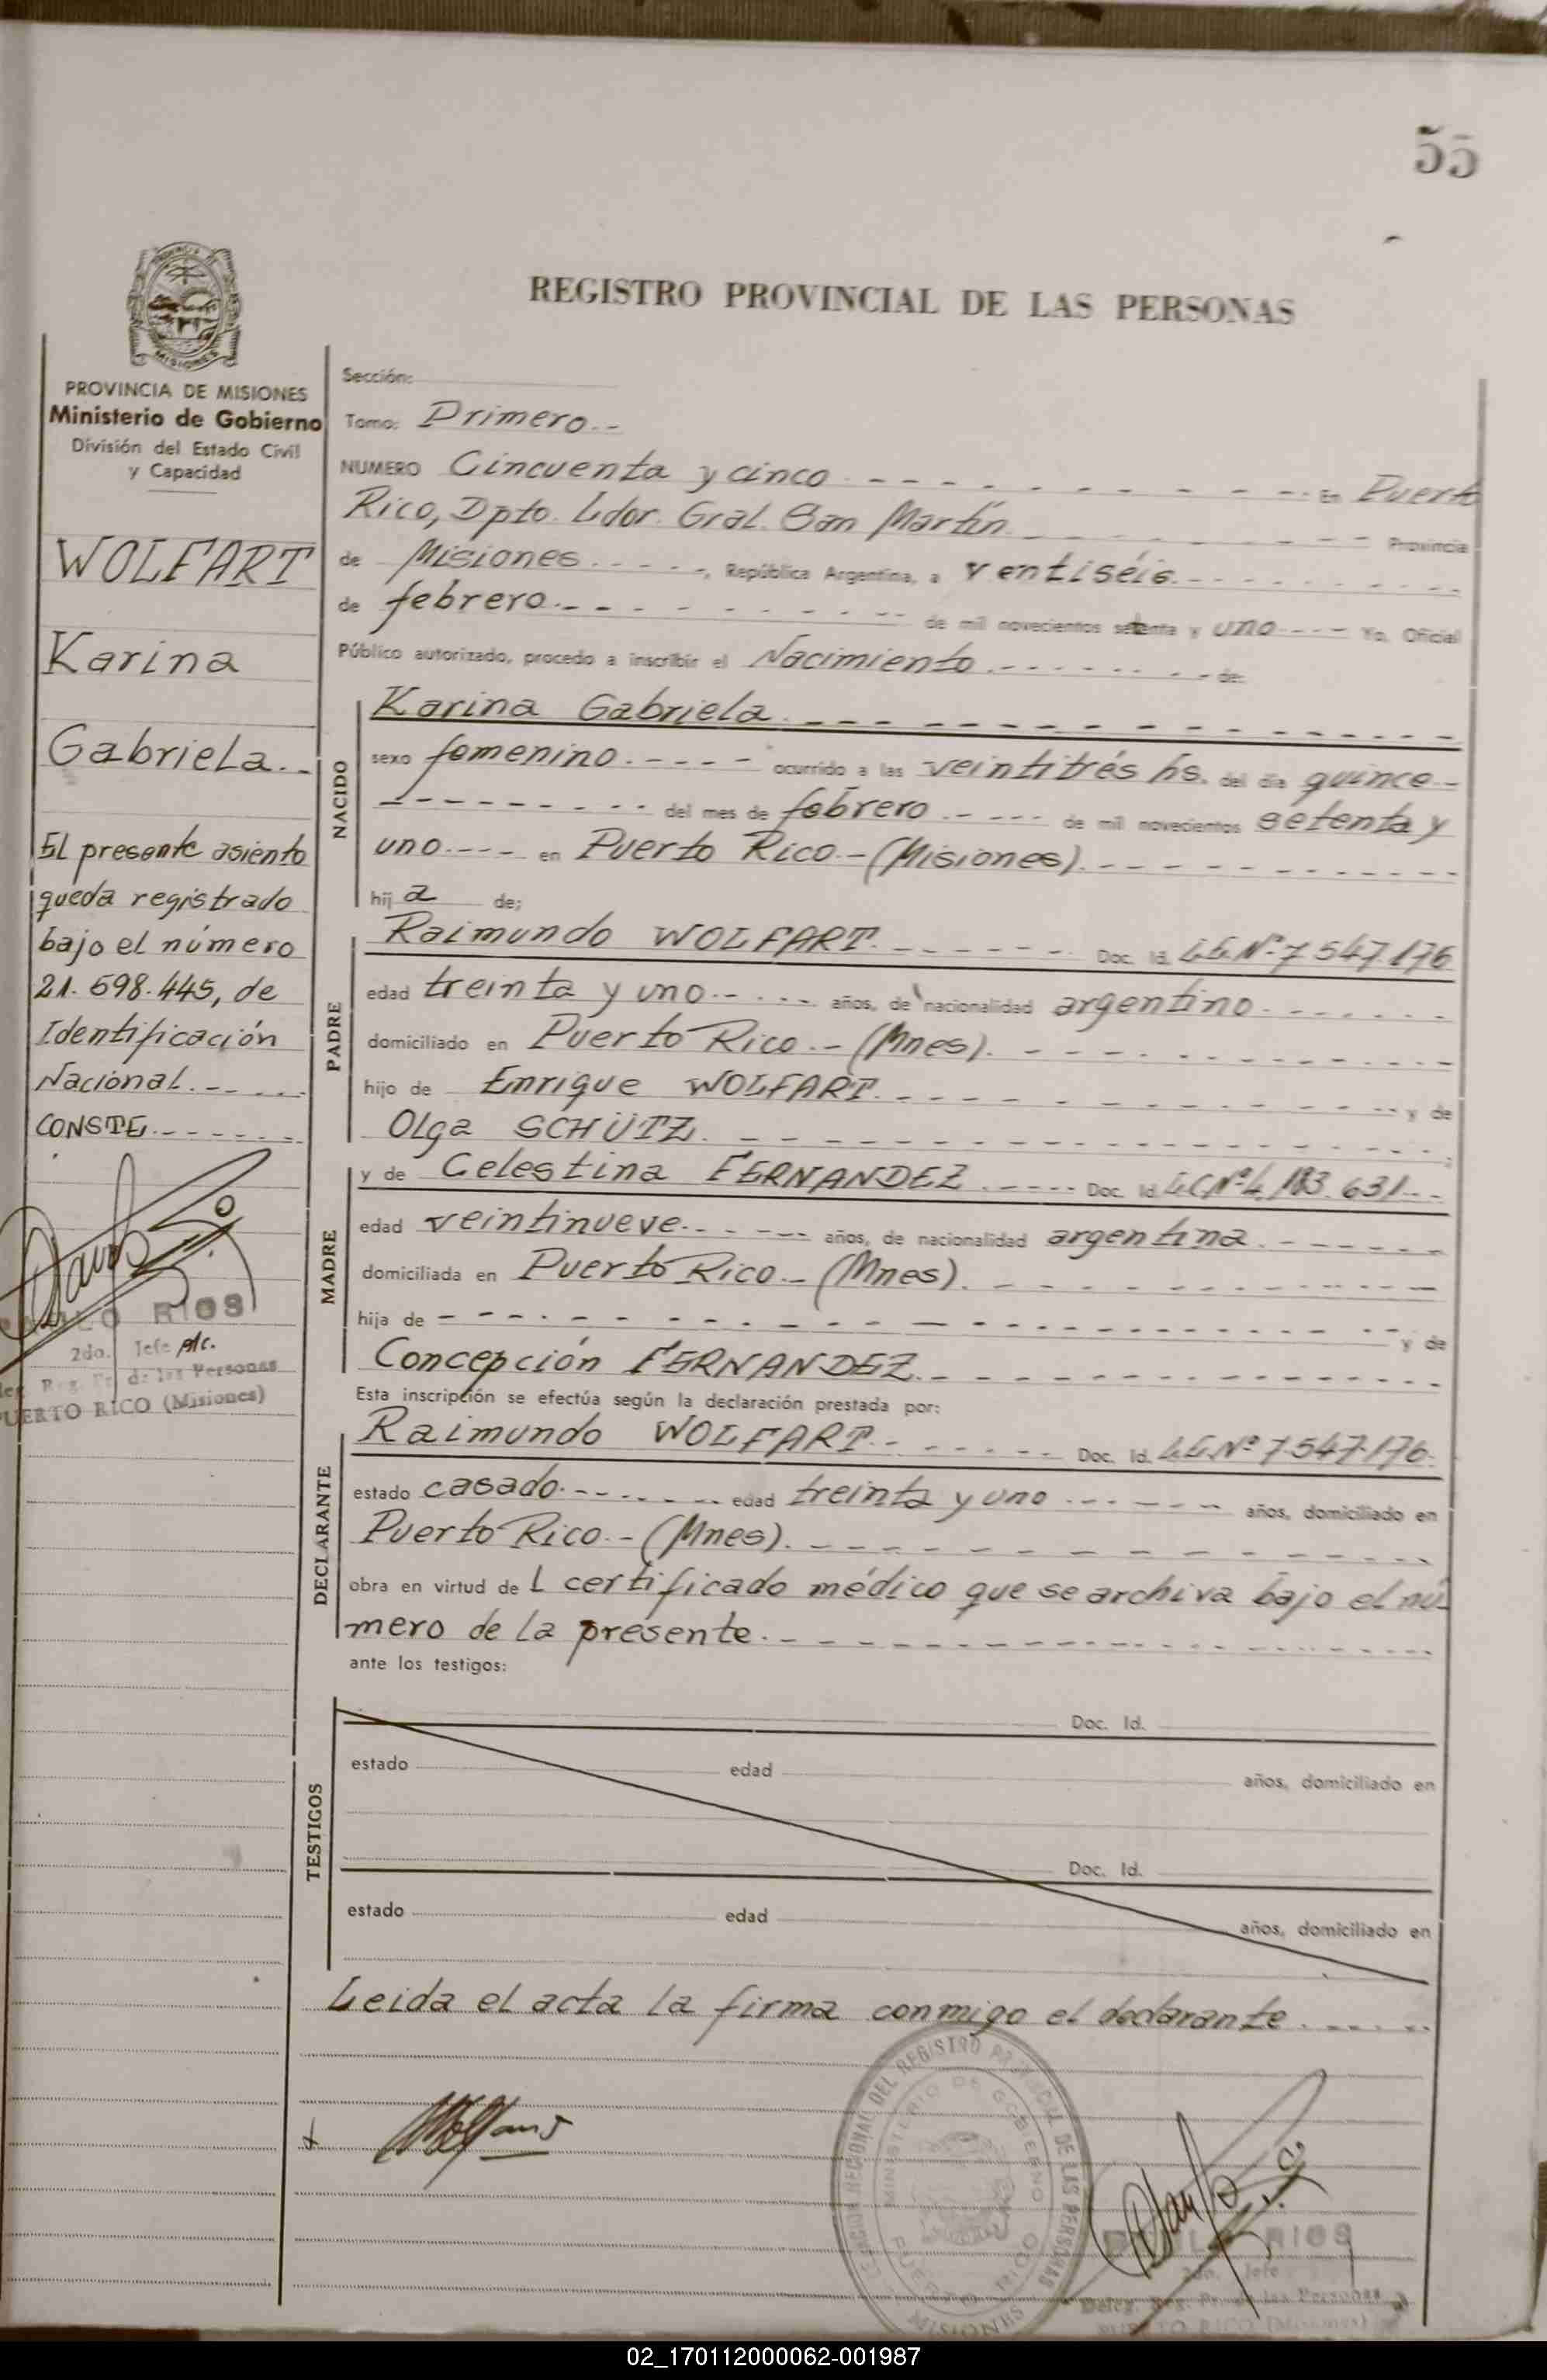 55
REGISTRO PROVINCIAL DE LAS PERSONAS
MISIONES
PROVINCIA DE MISIONES
Ministerio de Gobierno
División del Estado Civil
y Capacidad
WOLFART
Karina
Gabriela.-
El presente asiento
queda registrado
bajo el número
21.698.445, de
Identificación
Nacional.- - - - -
CONSTE.- - - - - -
RIOS
2do. Jefe A/c.
Reg. Pr. de las Personas
PUERTO RICO (Misiones)
Sección:
Tomo: Primero.-
NUMERO Cincuenta y cinco - - - - - - - - - - En Puerto
Rico, Dpto. Ldor. Gral. San Martín. - - - - - - - - Provincia
de Misiones. - - - - -, República Argentina, a ventiséis. - - - - - - - - -
de febrero. - - - - - - - - - - de mil novecientos setenta y uno - - - - Yo, Oficial
Público autorizado, procedo a inscribir el Nacimiento. - - - - - - - de:
NACIDO
Karina Gabriela. - - - - - - - - - - - - - -
sexo femenino. - - - - - ocurrido a las veintitrés hs. del día quince -
- - - - - - - - - - del mes de febrero. - - - - - de mil novecientos setenta y
uno. - - - - en Puerto Rico.- (Misiones). - - - - - - - - - - - -
hij a de;
PADRE
Raimundo WOLFART. - - - - - - - Doc. Id. L.E.Nº 7 547.176
edad treinta y uno.- . - - - años, de nacionalidad argentino. - - - - - -
domiciliado en Puerto Rico.- (Mnes). - - - - - - - - - - - -
hijo de Enrique WOLFART. - - - - - - - - - - - - y de
Olga SCHÜTZ. - - - - - - - - - - - - - - - - - - ;
MADRE
y de Celestina FERNANDEZ. - - - - - Doc. Id. L.C.Nº 4.183.631 - - -
edad veintinueve. - - - - - - años, de nacionalidad argentina. - - - - - -
domiciliada en Puerto Rico.- (Mnes). - - - - - - - - - - - -
hija de - - - - - - - - - - - - - - - - - - - - y de
Concepción FERNANDEZ. - - - - - - - - - - - - - -
Esta inscripción se efectúa según la declaración prestada por:
DECLARANTE
Raimundo WOLFART.- - - - - - - Doc. Id. L.E.Nº 7.547.176.
estado casado. - - - - - - - edad treinta y uno - - - - - - - años, domiciliado en
Puerto Rico.- (Mnes). - - - - - - - - - - - - - -
obra en virtud de L certificado médico que se archiva bajo el nú-
mero de la presente. - - - - - - - - - - - - - - - -
ante los testigos:
TESTIGOS
Doc. Id.
estado edad años, domiciliado en
Doc. Id.
estado edad años, domiciliado en
Leida el acta la firma conmigo el declarante. - - - - -
REGIONAL DEL REGISTRO PROVINCIAL DE LAS PERSONAS
MINISTERIO DE GOBIERNO
PUERTO RICO
MISIONES
RIOS
2do. Jefe
Deleg. Reg. Pr. de las Personas
PUERTO RICO (Misiones)
02_170112000062-001987